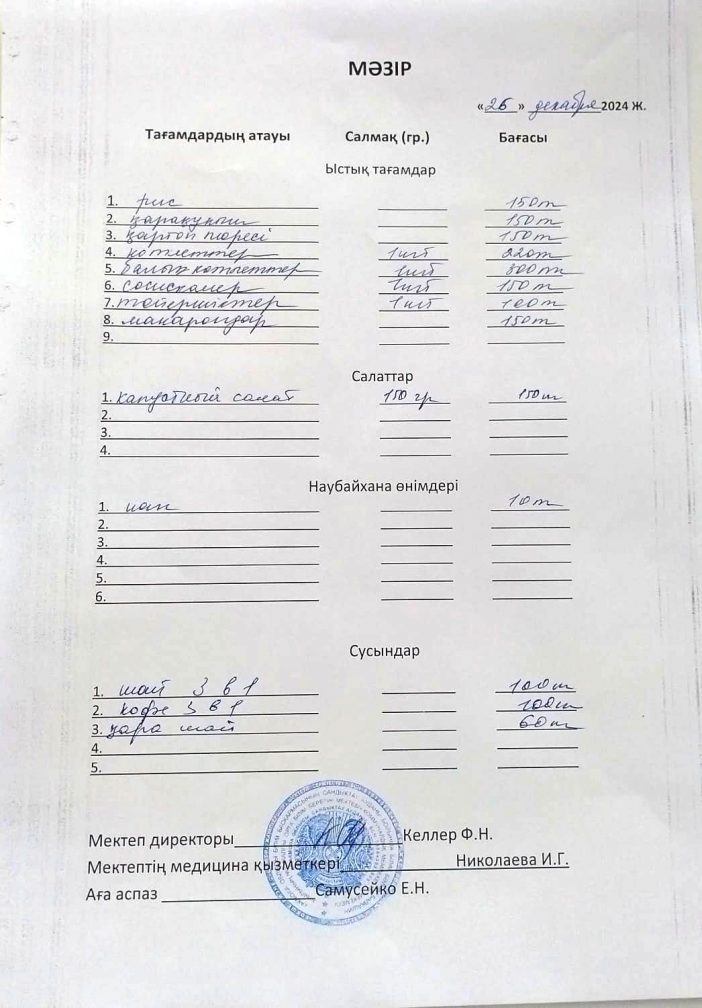 МӘЗІР
«26» декабря 2024 ж.
Тағамдардың атауы Салмақ (гр.) Бағасы
Ыстық тағамдар
1. рис 150т
2. қарақұмық 150т
3. қартоп пюресі 150т
4. котлеттер 1шт 220т
5. балық котлеттер 1шт 300т
6. сосискалер 1шт 150т
7. тефтельктер 1шт 100т
8. макарондар 150т
9.
Салаттар
1. капустный салат 150 гр 150т
2.
3.
4.
Наубайхана өнімдері
1. нан 10т
2.
3.
4.
5.
6.
Сусындар
1. шай 3 в 1 100т
2. кофе 3 в 1 100т
3. қара шай 60т
4.
5.
Мектеп директоры Келлер Ф.Н.
Мектептің медицина қызметкері Николаева И.Г.
Аға аспаз Самусейко Е.Н.